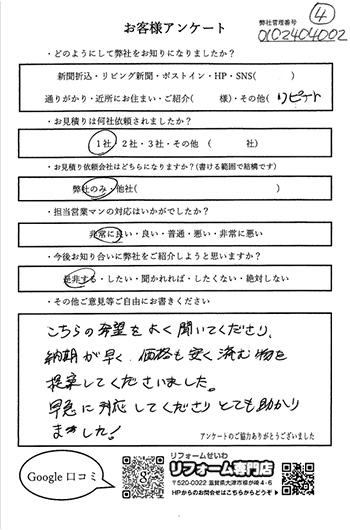 お客様アンケート
弊社管理番号
④
0102404002
・どのようにして弊社をお知りになりましたか?
新聞折込・リビング新聞・ポストイン・HP・SNS( )
通りがかり・近所にお住まい・ご紹介( 様)・その他( リピート
・お見積りは何社依頼されましたか?
1社・2社・3社・その他 ( 社)
・お見積り依頼会社はどちらになりますか?(書ける範囲で結構です)
弊社のみ・他社( )
・担当営業マンの対応はいかがでしたか?
非常に良い・良い・普通・悪い・非常に悪い
・今後お知り合いに弊社をご紹介しようと思いますか?
是非する・したい・聞かれれば・したくない・絶対しない
・その他ご意見等ご自由にお書きください
こちらの希望をよく聞いてくださり、
納期が早く、価格も安く済む物を
提案してくださいました。
早急に対応してくださりとても助かり
ました!
アンケートのご協力ありがとうございました
Google 口コミ
リフォームせいわ
リフォーム専門店
〒520-0322 滋賀県大津市
HPからのお問合せはこちらからどうぞ